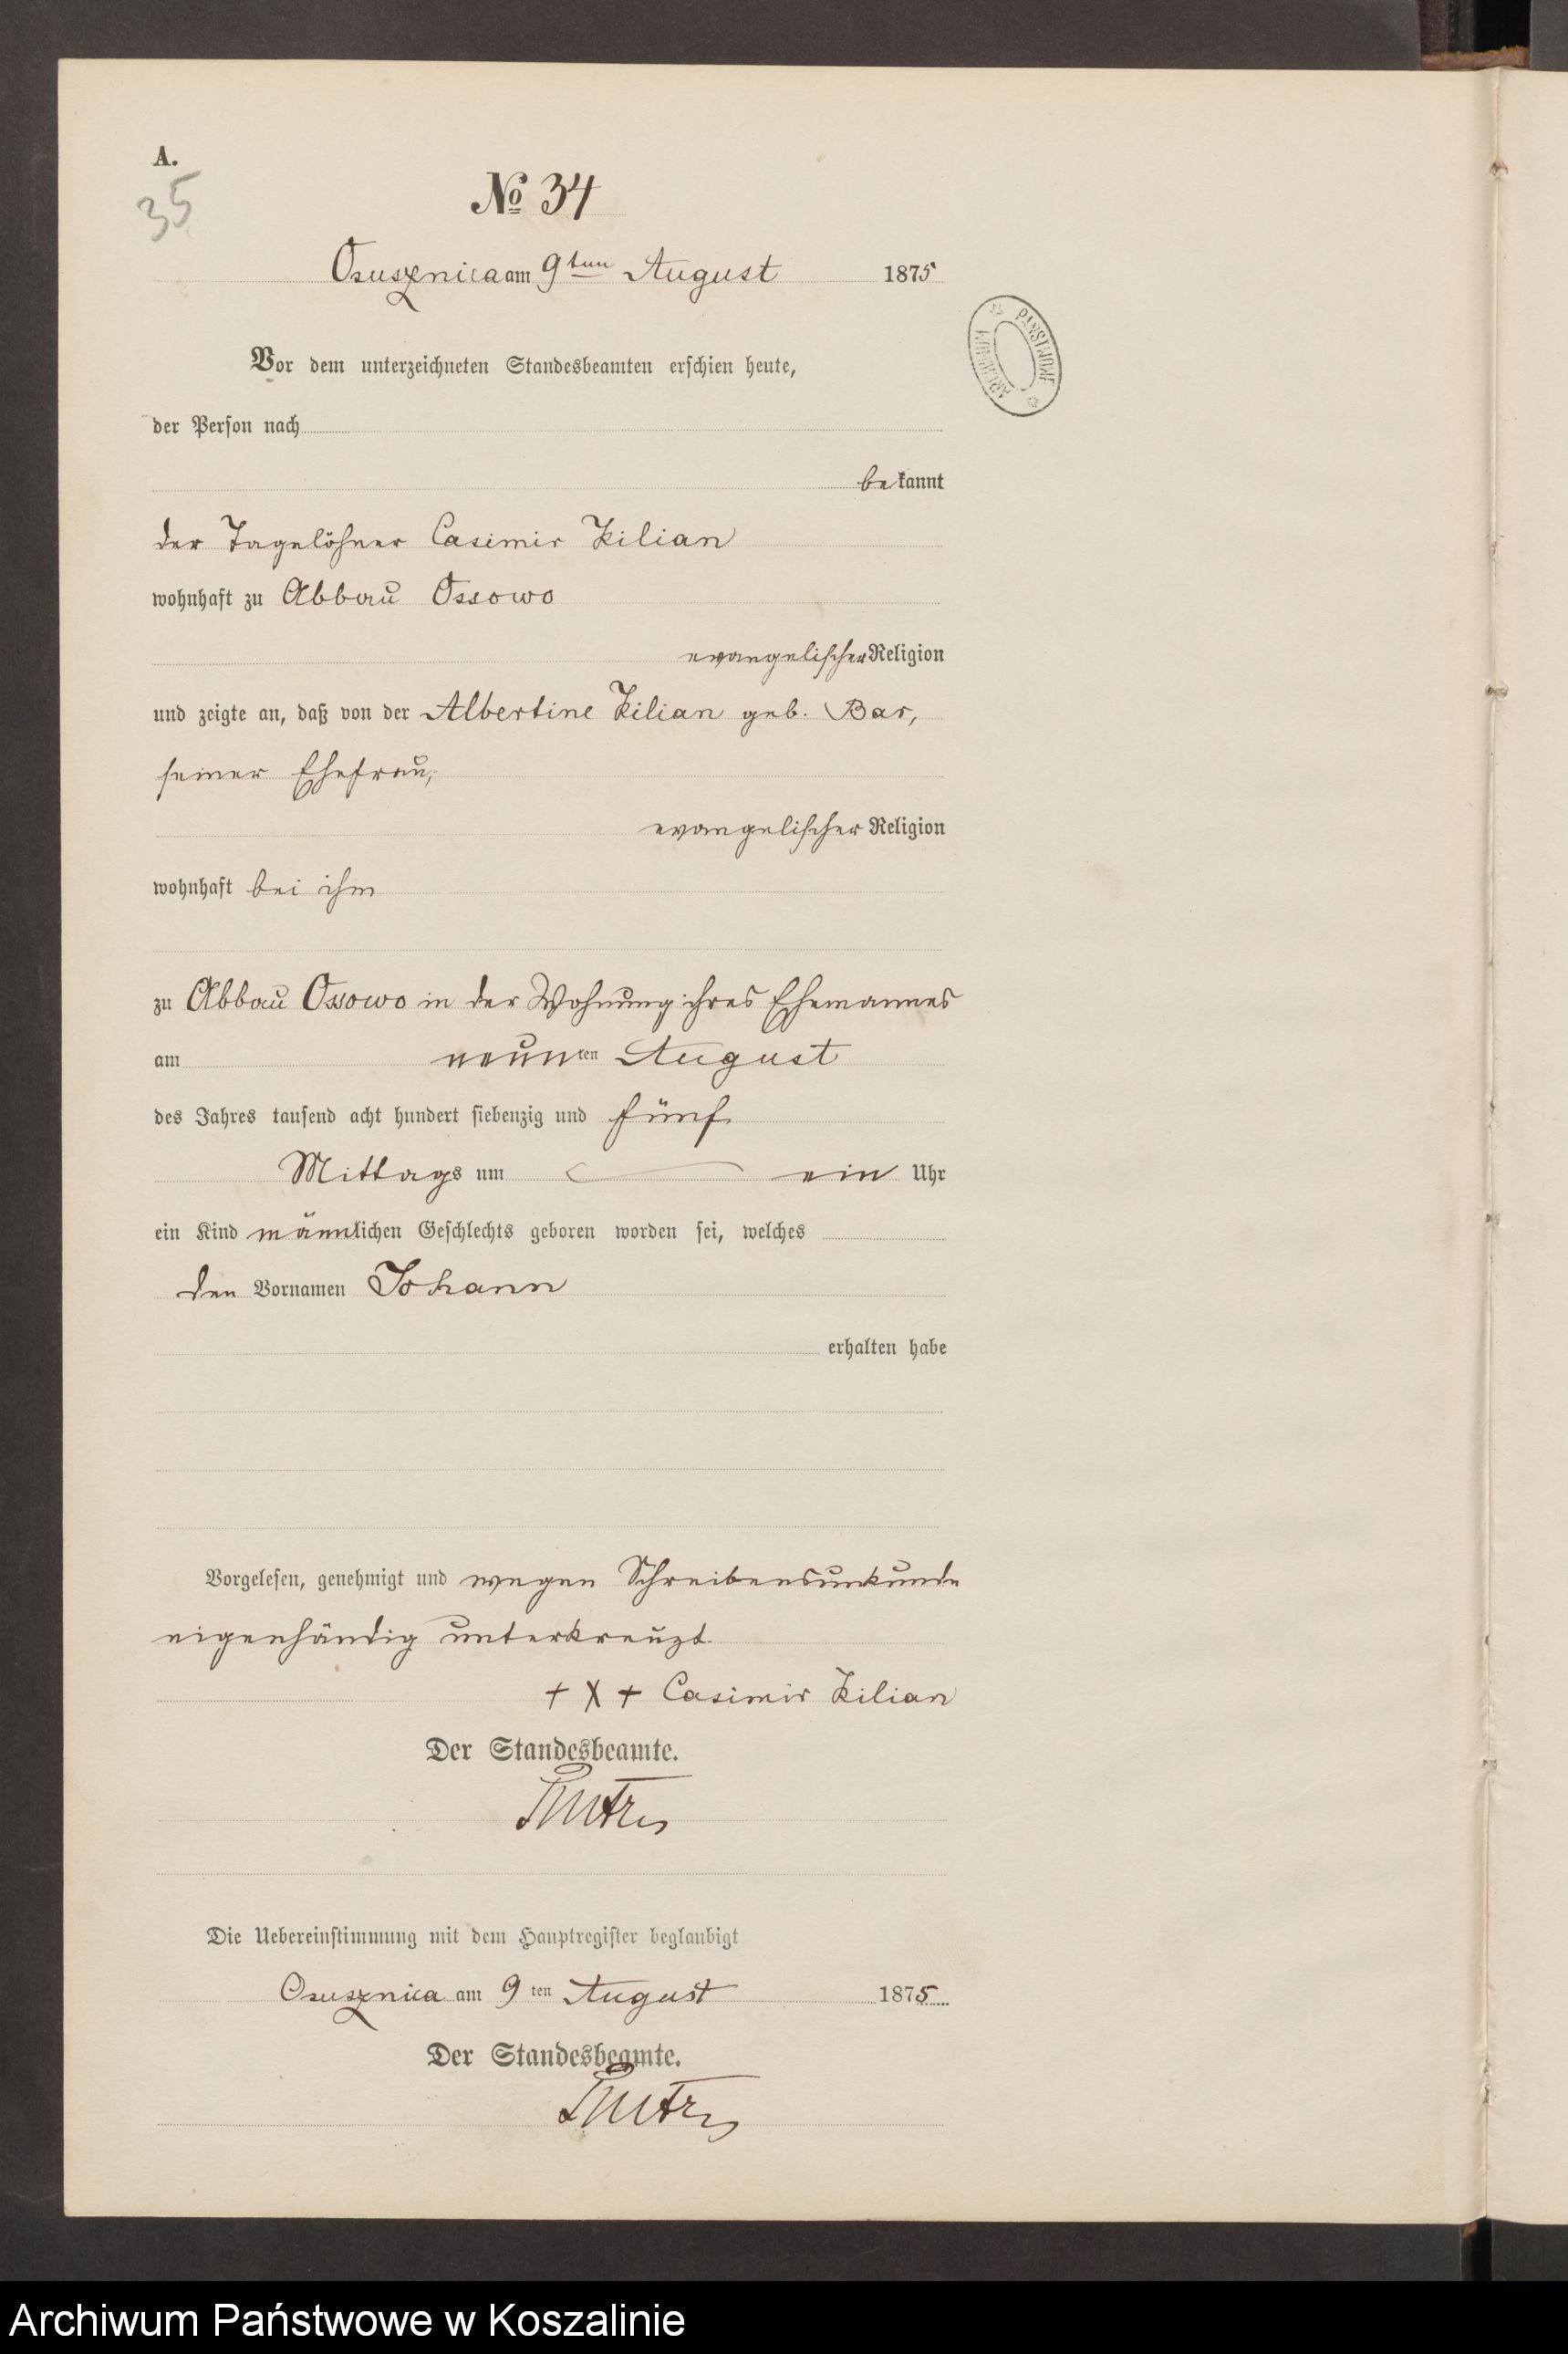 A.
35
No 34
Osusznica am 9ten August 1875
Vor dem unterzeichneten Standesbeamten erschien heute,
der Person nach
bekannt
der Tagelöhner Casimir Kilian
wohnhaft zu Abbau Ossowo
evangelischer Religion
und zeigte an, daß von der Albertine Kilian geb. Bar,
seiner Ehefrau,
evangelischer Religion
wohnhaft bei ihm
zu Abbau Ossowo in der Wohnung ihres Ehemannes
am neunten August
des Jahres tausend acht hundert siebenzig und fünf
Mittags um ein Uhr
ein Kind männlichen Geschlechts geboren worden sei, welches
den Vornamen Johann
erhalten habe
Vorgelesen, genehmigt und wegen Schreibensunkunde
eigenhändig unterkreuzt.
+ X + Casimir Kilian
Der Standesbeamte.
Die Uebereinstimmung mit dem Hauptregister beglaubigt
Osusznica am 9ten August 1875
Der Standesbeamte.
ARCHIWUM PAŃSTWOWE
Archiwum Państwowe w Koszalinie